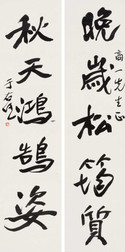 晚歲松筠質
一先生正
秋天鴻鵠姿
于右任